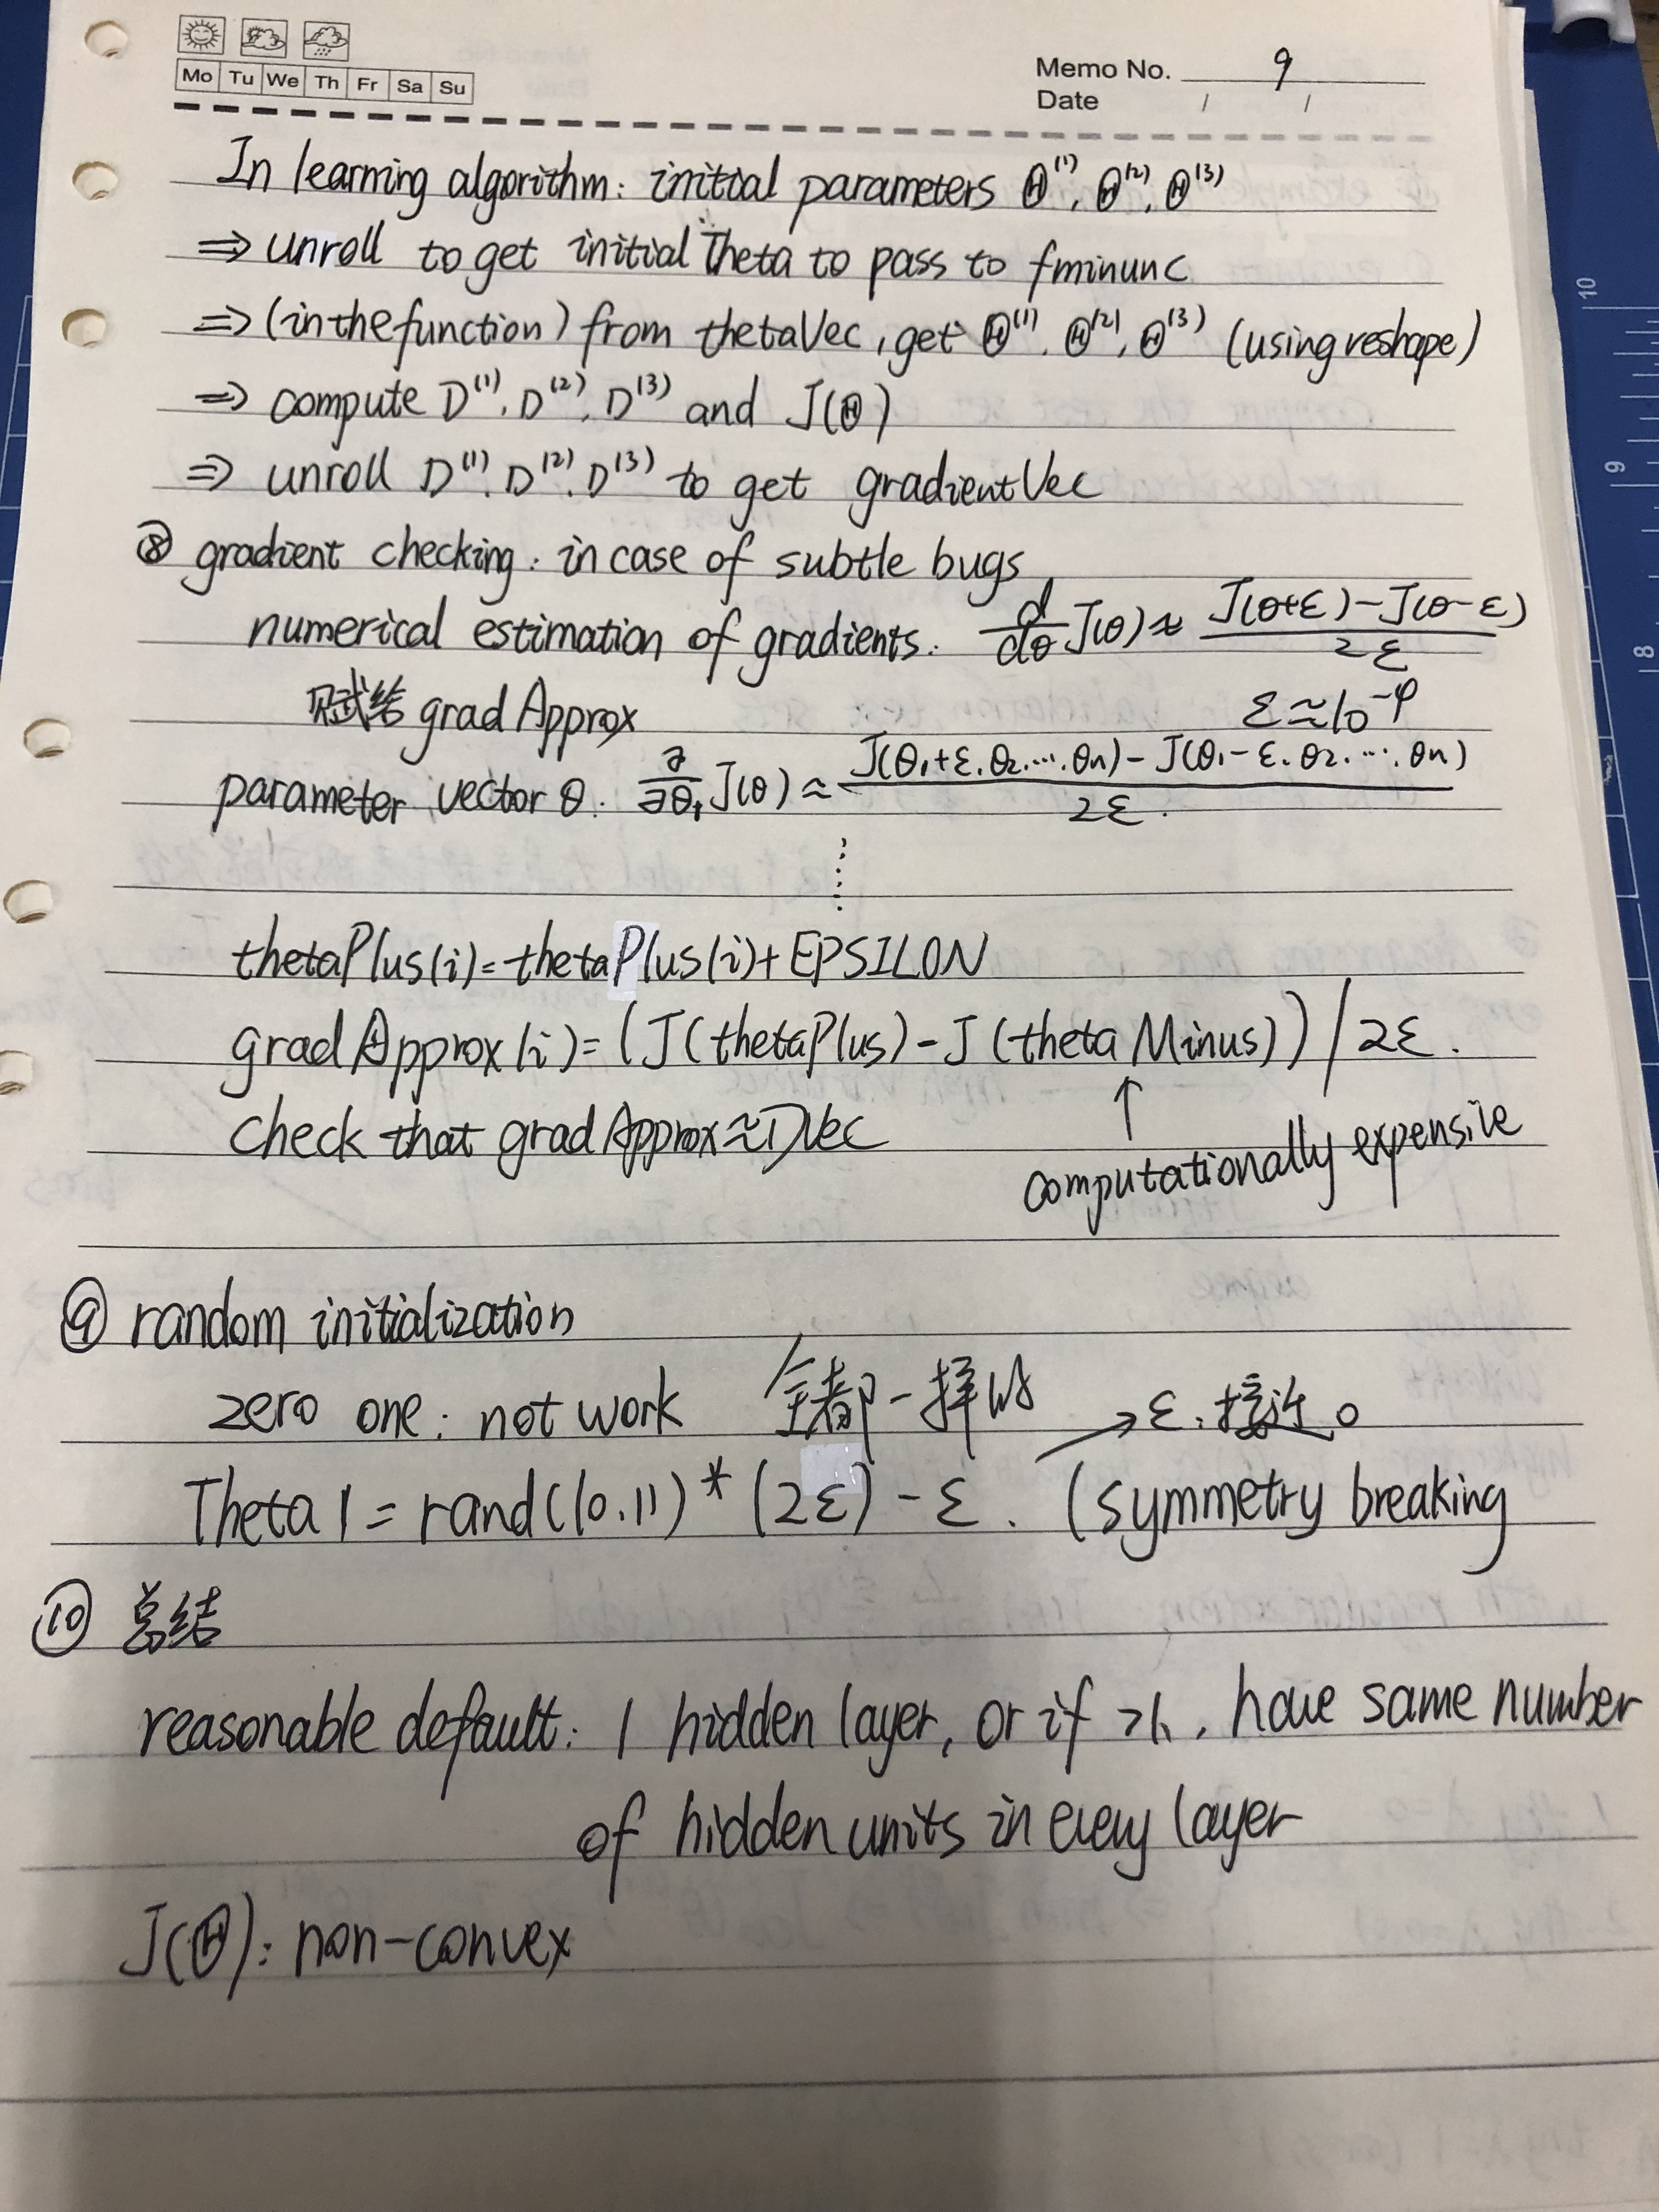 Mo Tu We Th Fr Sa Su
Memo No. 9
Date / /
In learning algorithm: initial parameters Θ⁽¹⁾, Θ⁽²⁾, Θ⁽³⁾
⇒ unroll to get initialTheta to pass to fminunc
⇒ (in the function) from thetaVec, get Θ⁽¹⁾, Θ⁽²⁾, Θ⁽³⁾ (using reshape)
⇒ compute D⁽¹⁾, D⁽²⁾, D⁽³⁾ and J(Θ)
⇒ unroll D⁽¹⁾, D⁽²⁾, D⁽³⁾ to get gradientVec
⑧ gradient checking: in case of subtle bugs
numerical estimation of gradients: d/dθ J(θ) ≈ (J(θ+ε)-J(θ-ε))/2ε
赋给 gradApprox ε≈10⁻⁴
parameter vector θ: ∂/∂θ₁ J(θ) ≈ (J(θ₁+ε, θ₂, ..., θn) - J(θ₁-ε, θ₂, ..., θn))/2ε.
⋮
thetaPlus(i)=thetaPlus(i)+EPSILON
gradApprox(i)=(J(thetaPlus)-J(thetaMinus))/2ε.
check that gradApprox≈DVec ↑
computationally expensive
⑨ random initialization
zero one: not work 全都一样的 → ε: 接近0
Theta1 = rand(10,11)*(2ε)-ε. (symmetry breaking
⑩ 总结
reasonable default: 1 hidden layer, or if >1, have same number
of hidden units in every layer
J(Θ): non-convex
10
9
8